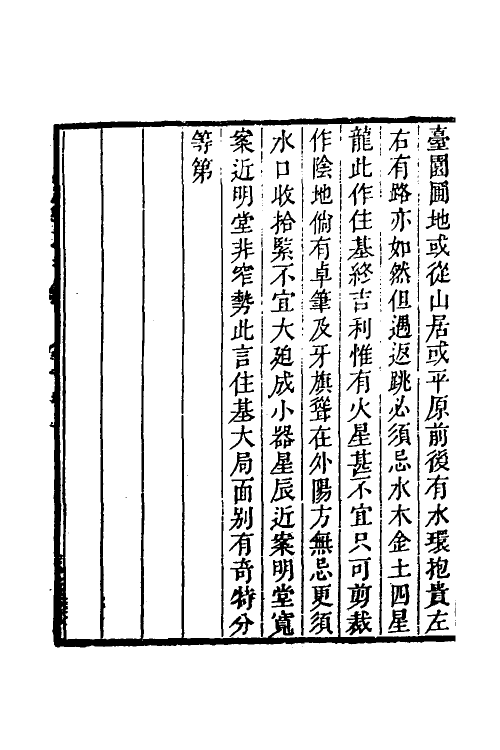 臺園圃地或從山居或平原前後有水環抱貴左
右有路亦如然但遇返跳必須忌水木金土四星
龍此作住基終吉利惟有火星甚不宜只可剪裁
作陰地倘有卓筆及牙旗聳在外陽方無忌更須
水口收拾緊不宜大廹成小器星辰近案明堂寬
案近明堂非窄勢此言住基大局面别有奇特分
等第